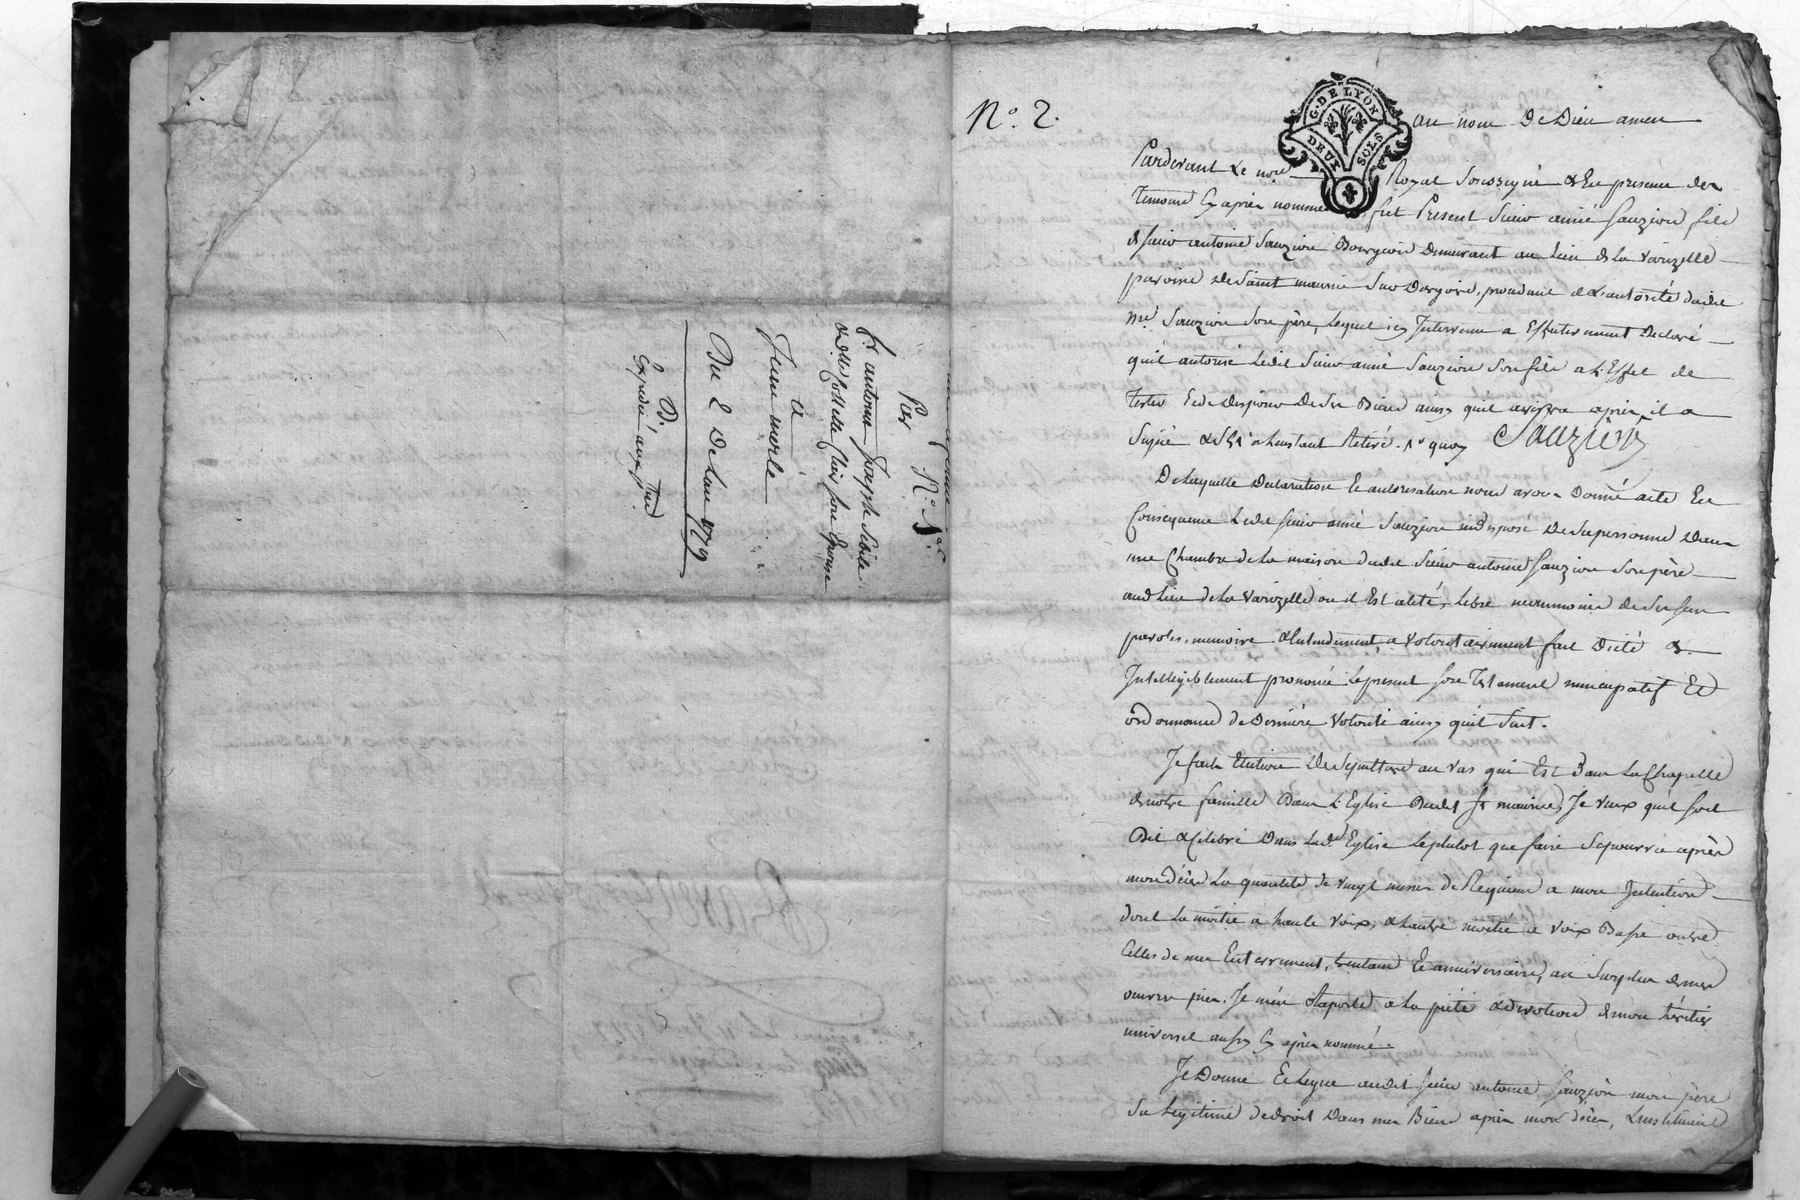 N.° 1.er
Par
Sr. antoine Joseph Sibile
& dlle Claire son Epouse
à
Jean merle
Du 2 De Lan 1779
D.
Expedié aux ptie
N.° 2.
G. DE LYON
DEUX SOLS
au nom De Dieu amen
Pardevant Le nore Royal Soussigné & En presence des
temoins Cy apres nommes fut Present Sieur aimé Sauzion fils
de sieur antoine Sauzion Bourgeois Demeurant au Lieu de La Varizelle
paroisse de Saint maurice Sur Dargoire, procedant de L'autorité dudit
Mr. Sauzion Son père, Lequel icy Intervenu a Effectivement Declaré
qu'il autorise Ledit Sieur aimé Sauzion Son fils a L'Effet de
tester Et de Disposer De Ses Biens ainsy quil avisera apres, il a
Signé & S'est a Linstant Retiré. Sauzion
De Laquelle Declaration Et autorisation nous avons Donné acte En
Consequence Ledit sieur aimé Sauzion indispose De Sa personne Dans
une Chambre de La maison dudit Sieur antoine Sauzion Son père
aud Lieu de La Varizelle ou il Est alité, Libre neanmoins de Ses sens
paroles, memoire & Entendement, a volontairement fait Dicté &
Intelligiblement prononcé Le present Son Testament nuncupatif Et
ordonnance de Dernière volonté ainsy qu'il Suit.
Je fais Election De Sepulture au Vas qui Est Dans La Chapelle
de notre famille Dans L'Eglise Dudit St maurice, Je veux quil soit
Dit & Celebré Dans Lad.e Eglise Leplutot que faire Sepourra après
mon Décès La quantité de vingt messes de Requiem a mon Intention
dont La moitié a haute voix, & Lautre moitié a voix Basse outre
Celles de mes Enterrement, trentain Et anniversaire, au Surplus de mes
oeuvres pies. Je m'en Raporte a La pieté & devotion de mon héritier
universel aussy Cy après nommé.
Je Donne Et Legue audit sieur antoine Sauzion mon père
Sa Legitime de droit Dans mes Biens après mon décès, Linstituant